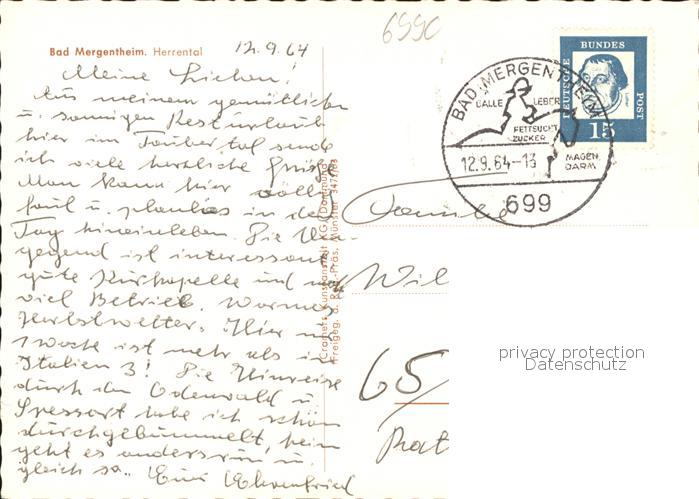 Bad Mergentheim. Herrental
12.9.64
6990
Meine Lieben!
Aus meinem gemütlichen
u. sonnigen Resturlaub
hier im Taubertal sende
ich viele herzliche Grüße
Man kann hier völlig
faul u. planlos in den
Tag hineinleben. Die Um-
gegend ist interessant
gute Kurkapelle und
viel Betrieb. Warmes
Herbstwetter. Hier
1 Woche ist mehr als in
Italien 3! Die Hinreise
durch den Odenwald u.
Spessart habe ich schön
durchgebummelt, heim
geht es anders rum u.
gleich so.. Euer Ehrenfried
Cramers Kunstanstalt KG. Dortmund
Freigeg. d. Reg.-Präs. Münster
BAD MERGENTHEIM
GALLE LEBER
FETTSUCHT
ZUCKER
MAGEN
DARM
12.9.64-13
699
DEUTSCHE BUNDES POST
15
Familie
Wil
65/
Rat
privacy protection
Datenschutz